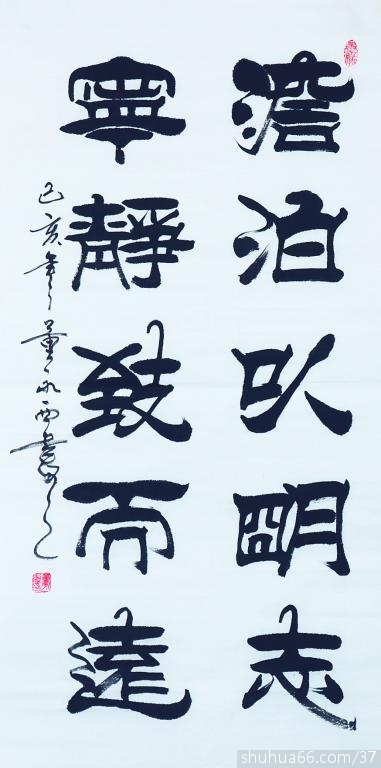 澹泊以明志
寧靜致而遠
己亥年董永西書
shuhua66.com/37